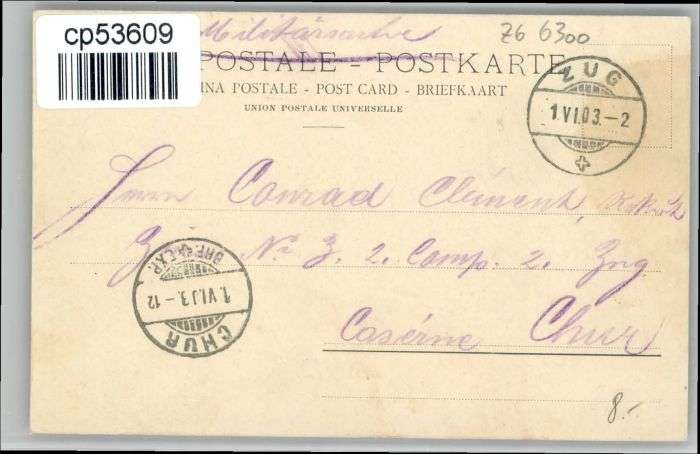 cp53609
Militärsache
ZG 6300
POSTALE - POSTKARTE
INA POSTALE - POST CARD - BRIEFKAART
UNION POSTALE UNIVERSELLE
ZUG
1.VI.03.-2
Herrn Conrad Clement, Rekrut
No 3. 2. Comp. 2. Zug
Caserne Chur
BRF.EXP.
1.VI.03.-12
CHUR
8.-